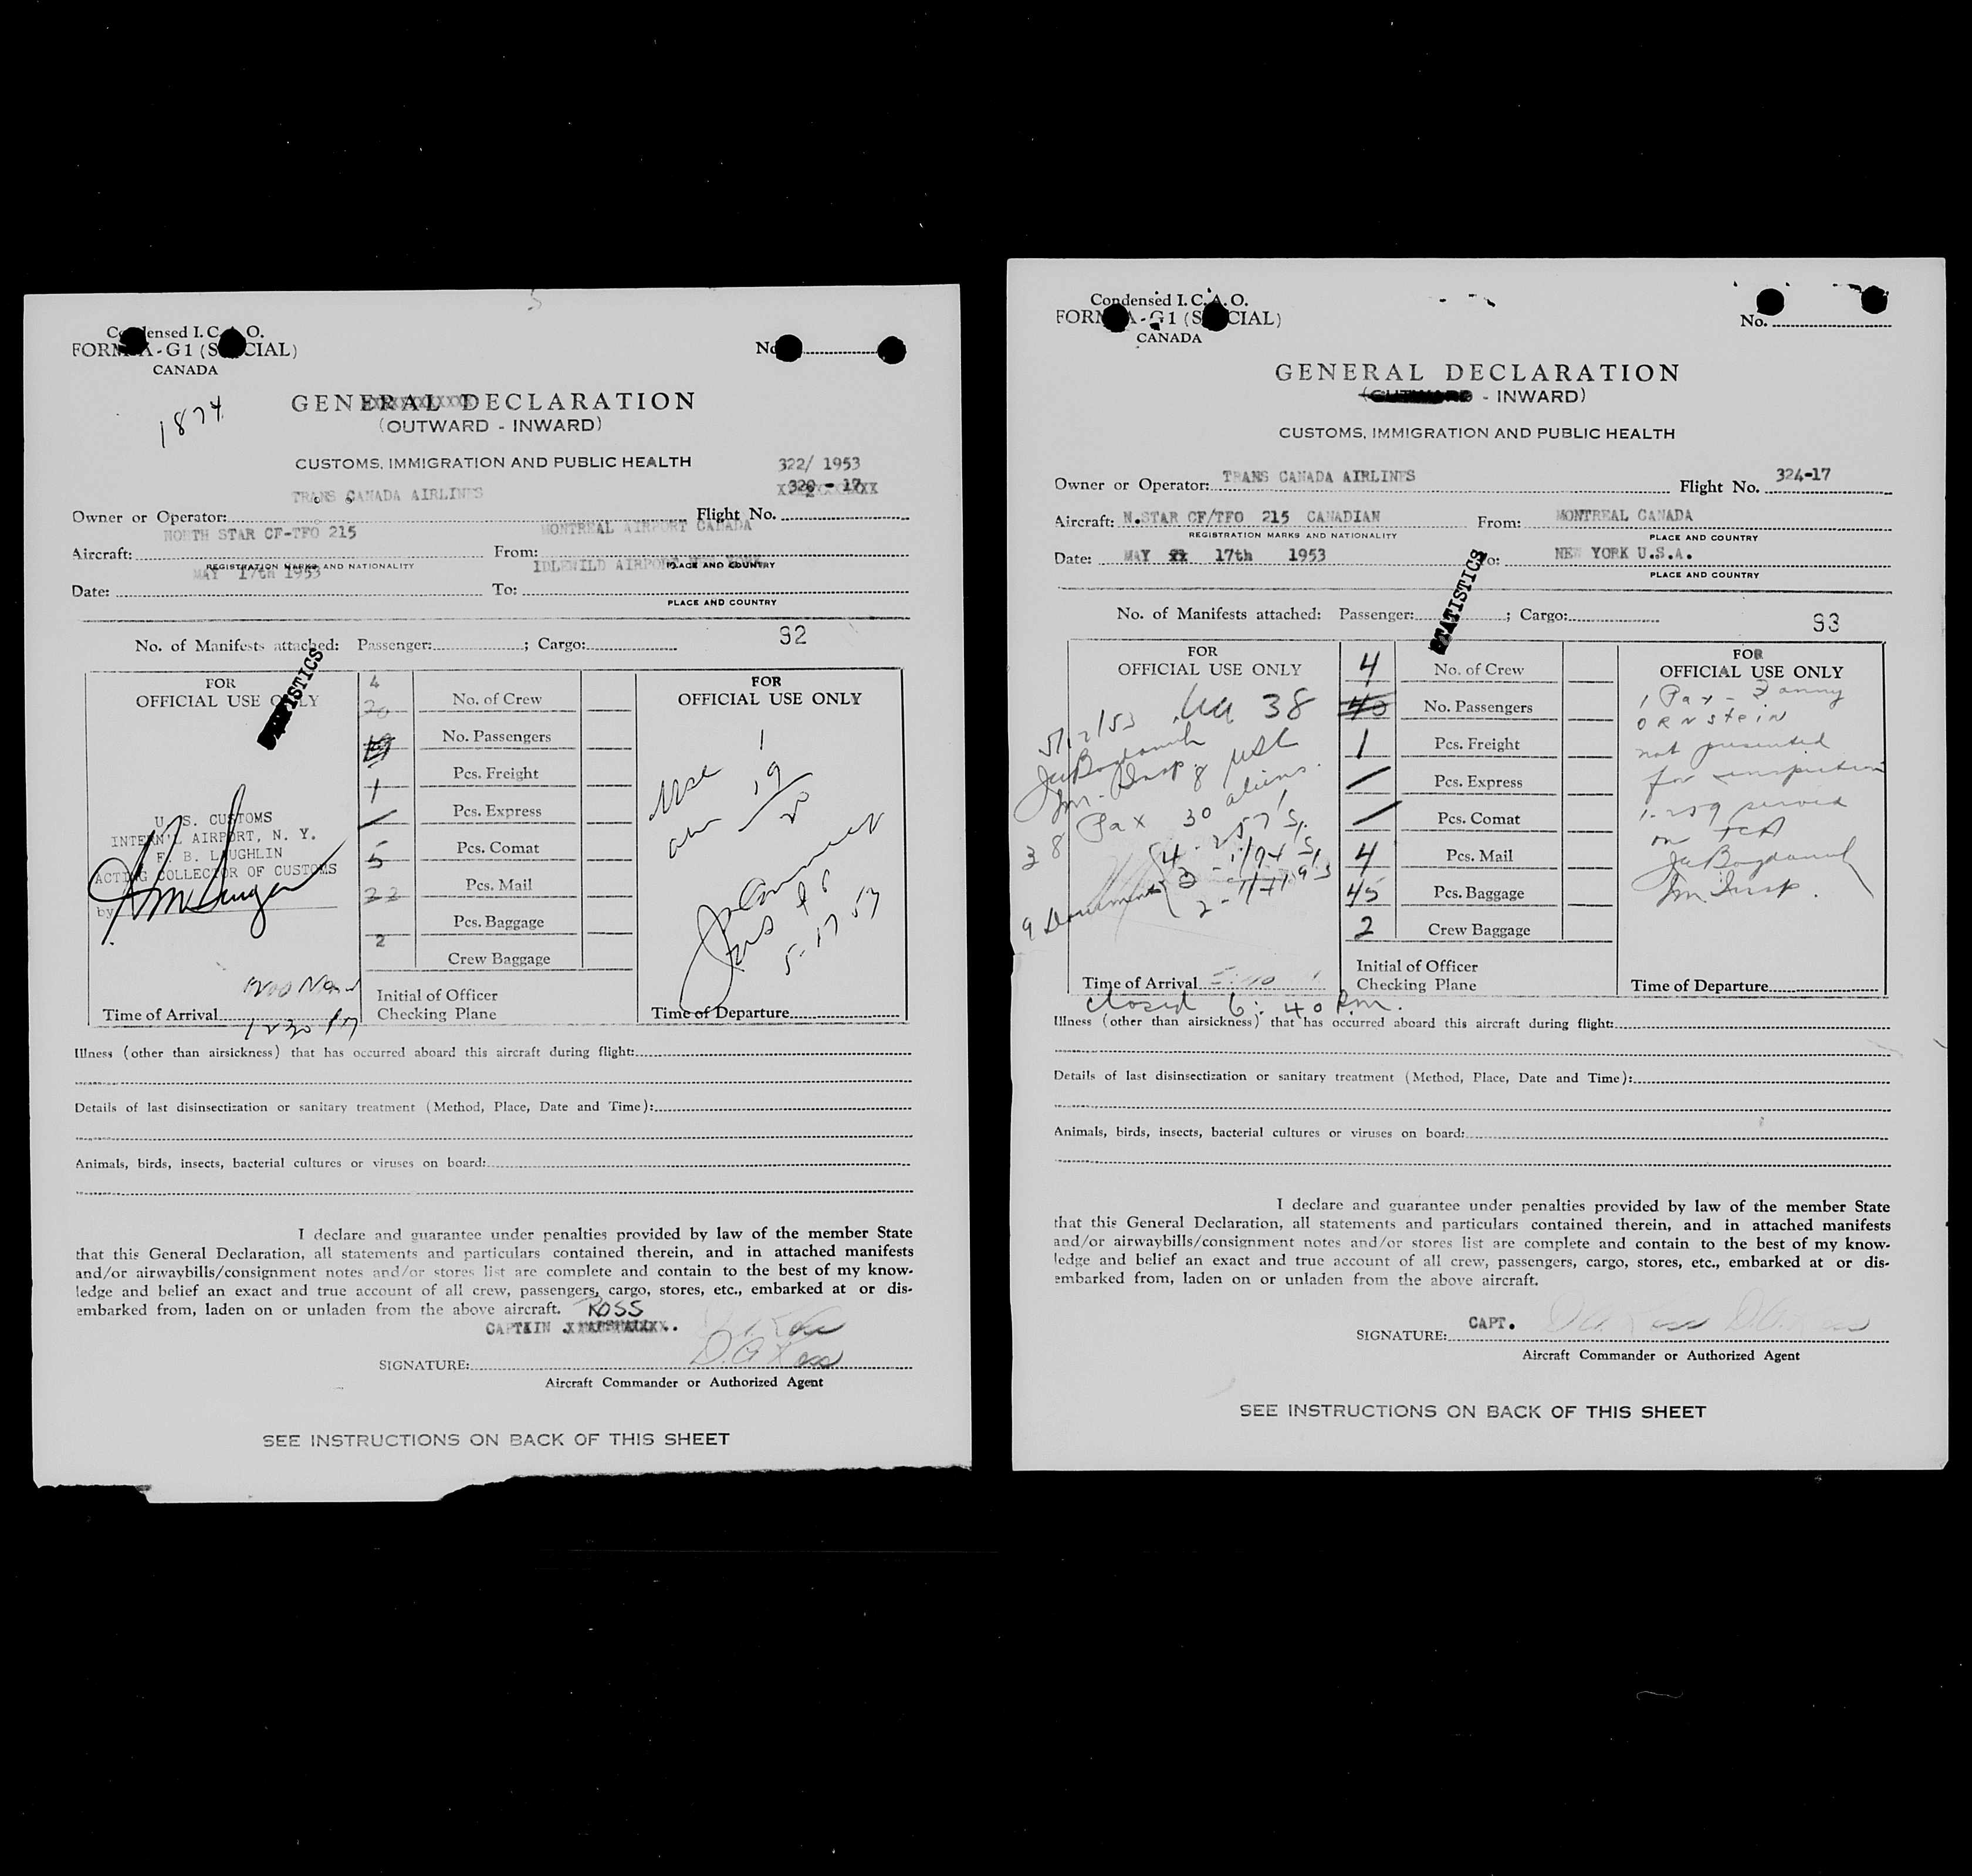 Condensed I. C. A. O.
FORM A-G1 (SPECIAL)
CANADA
No.
1874
GENERAL DECLARATION
(OUTWARD - INWARD)
CUSTOMS, IMMIGRATION AND PUBLIC HEALTH
322/ 1953
TRANS CANADA AIRLINES
Owner or Operator:
Flight No.
NORTH STAR CF-TFO 215
MONTREAL AIRPORT CANADA
Aircraft:
From:
REGISTRATION MARKS AND NATIONALITY
PLACE AND COUNTRY
MAY 17th 1953
IDLEWILD AIRPORT
Date:
To:
PLACE AND COUNTRY
No. of Manifests attached: Passenger: ; Cargo:
92
STATISTICS
FOR
OFFICIAL USE ONLY
U. S. CUSTOMS
INTERN'L AIRPORT, N. Y.
F. B. LAUGHLIN
ACTING COLLECTOR OF CUSTOMS
by
1200 Noon
Time of Arrival
1230 PM
4
No. of Crew
20
No. Passengers
19
Pcs. Freight
1
Pcs. Express
/
Pcs. Comat
5
Pcs. Mail
22
Pcs. Baggage
2
Crew Baggage
Initial of Officer
Checking Plane
FOR
OFFICIAL USE ONLY
1
19
20
5-17 53
Time of Departure
Illness (other than airsickness) that has occurred aboard this aircraft during flight:
Details of last disinsectization or sanitary treatment (Method, Place, Date and Time):
Animals, birds, insects, bacterial cultures or viruses on board:
I declare and guarantee under penalties provided by law of the member State
that this General Declaration, all statements and particulars contained therein, and in attached manifests
and/or airwaybills/consignment notes and/or stores list are complete and contain to the best of my know-
ledge and belief an exact and true account of all crew, passengers, cargo, stores, etc., embarked at or dis-
embarked from, laden on or unladen from the above aircraft.
ROSS
CAPTAIN
D. A. Ross
SIGNATURE:
Aircraft Commander or Authorized Agent
SEE INSTRUCTIONS ON BACK OF THIS SHEET
Condensed I. C. A. O.
FORM A-G1 (SPECIAL)
CANADA
No.
GENERAL DECLARATION
(OUTWARD - INWARD)
CUSTOMS, IMMIGRATION AND PUBLIC HEALTH
Owner or Operator: TRANS CANADA AIRLINES Flight No. 324-17
Aircraft: N.STAR CF/TFO 215 CANADIAN From: MONTREAL CANADA
REGISTRATION MARKS AND NATIONALITY
PLACE AND COUNTRY
Date: MAY 17th 1953 To: NEW YORK U.S.A.
PLACE AND COUNTRY
STATISTICS
No. of Manifests attached: Passenger: ; Cargo:
93
FOR
OFFICIAL USE ONLY
38
Im. Insp. 8 USC
38 Pax 30 aliens
9 Documents
Time of Arrival
Closed 6:40 P.m.
4
No. of Crew
40
No. Passengers
1
Pcs. Freight
/
Pcs. Express
/
Pcs. Comat
4
Pcs. Mail
45
Pcs. Baggage
2
Crew Baggage
Initial of Officer
Checking Plane
FOR
OFFICIAL USE ONLY
1 Pax -
ORNSTEIN
not presented
for inspection
1-259 served
on TCA
Im. Insp.
Time of Departure
Illness (other than airsickness) that has occurred aboard this aircraft during flight:
Details of last disinsectization or sanitary treatment (Method, Place, Date and Time):
Animals, birds, insects, bacterial cultures or viruses on board:
I declare and guarantee under penalties provided by law of the member State
that this General Declaration, all statements and particulars contained therein, and in attached manifests
and/or airwaybills/consignment notes and/or stores list are complete and contain to the best of my know-
ledge and belief an exact and true account of all crew, passengers, cargo, stores, etc., embarked at or dis-
embarked from, laden on or unladen from the above aircraft.
CAPT. D. A. Ross
SIGNATURE:
Aircraft Commander or Authorized Agent
SEE INSTRUCTIONS ON BACK OF THIS SHEET